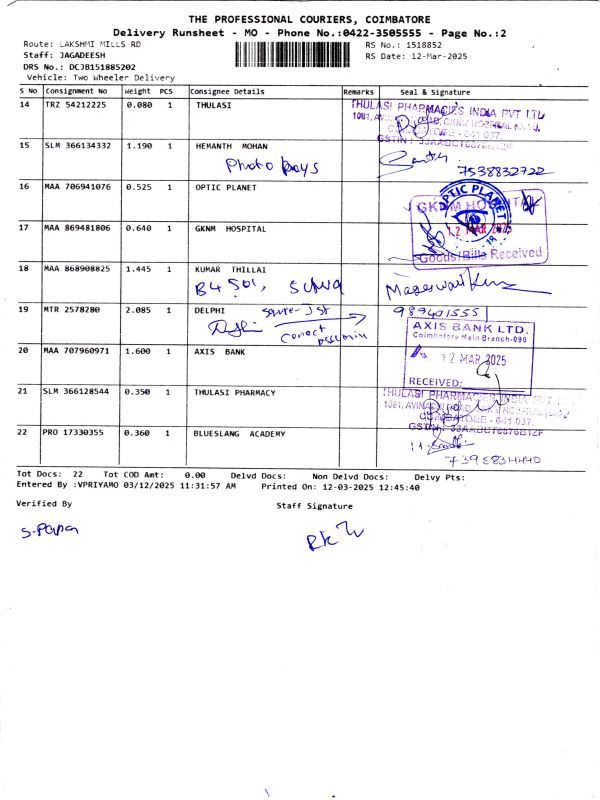 THE PROFESSIONAL COURIERS, COIMBATORE
Delivery Runsheet - MO - Phone No.:0422-3505555 - Page No.:2
Route: LAKSHMI MILLS RD
RS No.: 1518852
Staff: JAGADEESH
RS Date: 12-Mar-2025
DRS No.: DCJB151885202
Vehicle: Two Wheeler Delivery
S No Consignment No Weight PCS Consignee Details Remarks Seal & Signature
14 TRZ 54212225 0.080 1 THULASI
THULASI PHARMACIES INDIA PVT LTD
15 SLM 366134332 1.190 1 HEMANTH MOHAN
Photo boys
7538832722
16 MAA 706941076 0.525 1 OPTIC PLANET
OPTIC PLANET
17 MAA 869481806 0.640 1 GKNM HOSPITAL
GKNM HOSPITAL
12 MAR 2025
Goods/Bills Received
18 MAA 868908825 1.445 1 KUMAR THILLAI
B4 501,
19 MTR 2578280 2.085 1 DELPHI
989401555
20 MAA 707960971 1.600 1 AXIS BANK
AXIS BANK LTD.
Coimbatore Main Branch-090
12 MAR 2025
RECEIVED:
21 SLM 366128544 0.350 1 THULASI PHARMACY
THULASI PHARMACIES INDIA PVT LTD
22 PRO 17330355 0.360 1 BLUESLANG ACADEMY
Tot Docs: 22 Tot COD Amt: 0.00 Delvd Docs: Non Delvd Docs: Delvy Pts:
Entered By :VPRIYAMO 03/12/2025 11:31:57 AM Printed On: 12-03-2025 12:45:40
Verified By
Staff Signature
S.Papa